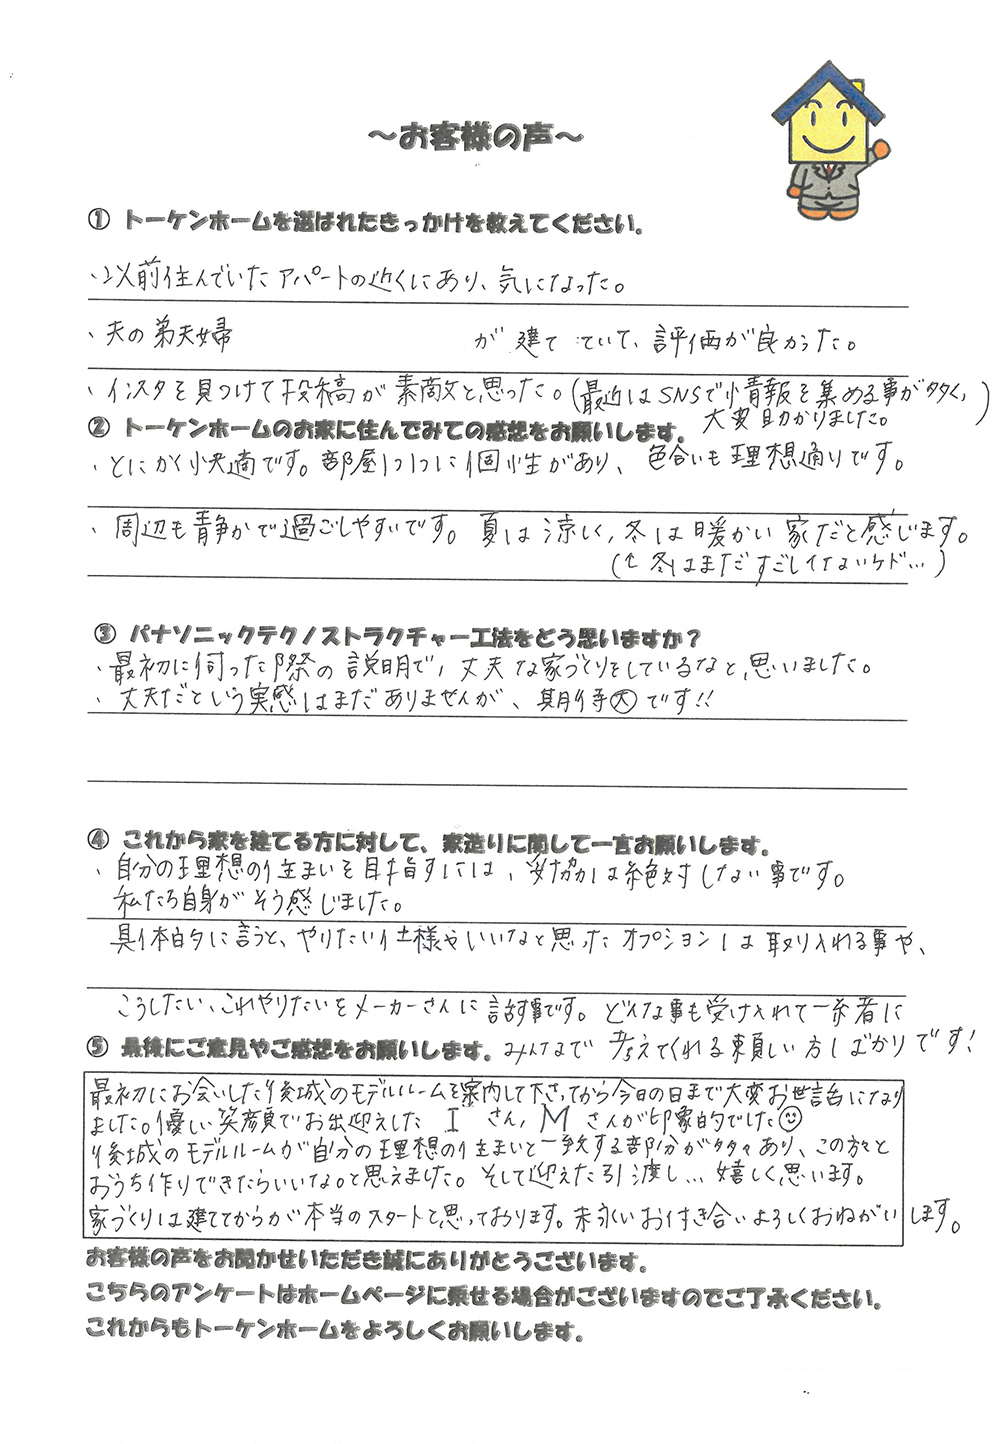 ～お客様の声～
① トーケンホームを選ばれたきっかけを教えてください。
・以前住んでいたアパートの近くにあり、気になった。
・夫の弟夫婦 が建て ていて、評価が良かった。
・インスタを見つけて投稿が素敵と思った。(最近はSNSで情報を集める事が多く、
大変助かりました。)
② トーケンホームのお家に住んでみての感想をお願いします。
・とにかく快適です。部屋1つ1つに個性があり、色合いも理想通りです。
・周辺も静かで過ごしやすいです。夏は涼しく、冬は暖かい家だと感じます。
(↑冬はまだすごしてないケド…)
③ パナソニックテクノストラクチャー工法をどう思いますか？
・最初に伺った際の説明で、丈夫な家づくりをしているなと思いました。
・丈夫だという実感はまだありませんが、期待大です!!
④ これから家を建てる方に対して、家造りに関して一言お願いします。
・自分の理想の住まいを目指すには、妥協は絶対しない事です。
私たち自身がそう感じました。
具体的に言うと、やりたい仕様やいいなと思ったオプションは取り入れる事や、
こうしたい、これやりたいをメーカーさんに話す事です。どんな事も受け入れて一緒に
⑤ 最後にご意見やご感想をお願いします。
みんなで考えてくれる頼しい方しばかりです!
最初にお会いした後城のモデルルームを案内して下さってから今日の日まで大変お世話になり
ました。優しい笑顔でお出迎えした I さん, M さんが印象的でした☺
後城のモデルルームが自分の理想の住まいと一致する部分が多々あり、この方々と
おうち作りできたらいいな。と思えました。そして迎えた引渡し…嬉しく思います。
家づくりは建ててからが本当のスタートと思っております。末永いお付き合いよろしくおねがいします。
お客様の声をお聞かせいただき誠にありがとうございます。
こちらのアンケートはホームページに乗せる場合がございますのでご了承ください。
これからもトーケンホームをよろしくお願いします。